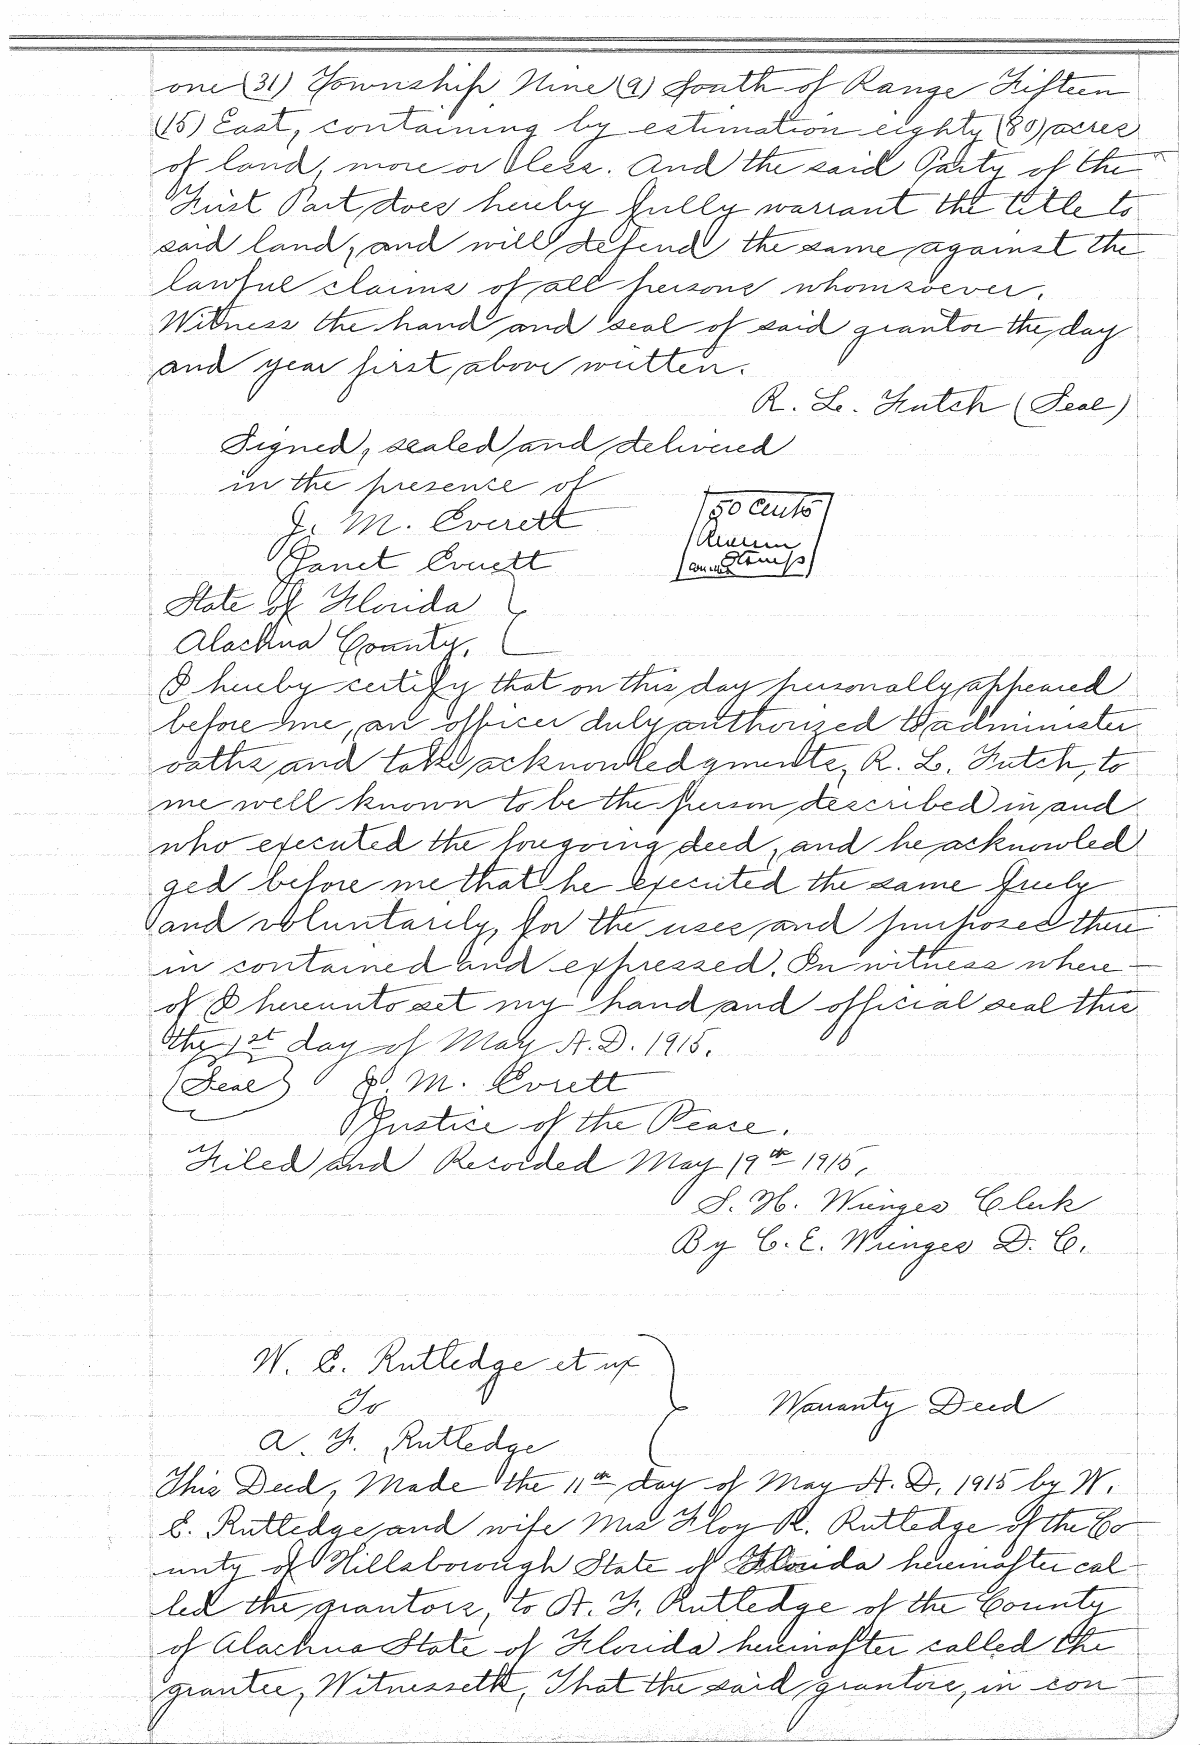 one (31) Township Nine (9) South of Range Fifteen
(15) East, containing by estimation eighty (80) acres
of land, more or less. And the said Party of the
First Part does hereby fully warrant the title to
said land, and will defend the same against the
lawful claims of all persons whomsoever.
Witness the hand and seal of said grantor the day
and year first above written.
R. L. Futch (Seal)
Signed, sealed and delivered
in the presence of
J. M. Everett
Janet Everett
50 Cents
Revenue
Stamps
State of Florida
Alachua County.
I hereby certify that on this day personally appeared
before me, an officer duly authorized to administer
oaths and take acknowledgments, R. L. Futch, to
me well known to be the person described in and
who executed the foregoing deed, and he acknowled
ged before me that he executed the same freely
and voluntarily, for the uses and purposes there
in contained and expressed. In witness where-
of I hereunto set my hand and official seal this
the 1st day of May A.D. 1915.
(Seal) J. M. Everett
Justice of the Peace.
Filed and Recorded May 19th 1915,
S. H. Wienges Clerk
By C. E. Wienges D. C.
W. E. Rutledge et ux
To
A. F. Rutledge
Warranty Deed
This Deed, Made the 11th day of May A. D. 1915 by W.
E. Rutledge and wife Mrs Floy R. Rutledge of the Co
unty of Hillsborough State of Florida hereinafter cal
led the grantors, to A. F. Rutledge of the County
of Alachua State of Florida hereinafter called the
grantee, Witnesseth, That the said grantors, in con